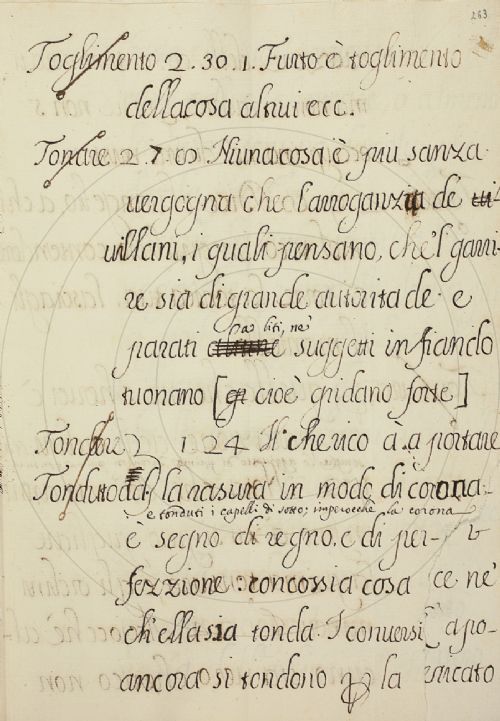 263
Toglimento 2. 30. 1. Furto è toglimento
della cosa altrui ecc.
Tonare 2 7 Niuna cosa è piu sanza
vergogna che l'arroganzia de
villani, i quali pensano, che'l garri-
re sia di grande autoritade e
parati suggetti in fianclo
tuonano [cioè gridano forte]
Tondere 2 124 Il cherico à a portare
Tonduto la rasura in modo di corona
e tonduti i capelli di sotto; imperocchè la corona
è segno di regno, e di per-
fezzione: concossia cosa
ch'ella sia tonda. I conversi
ancora si tondono la